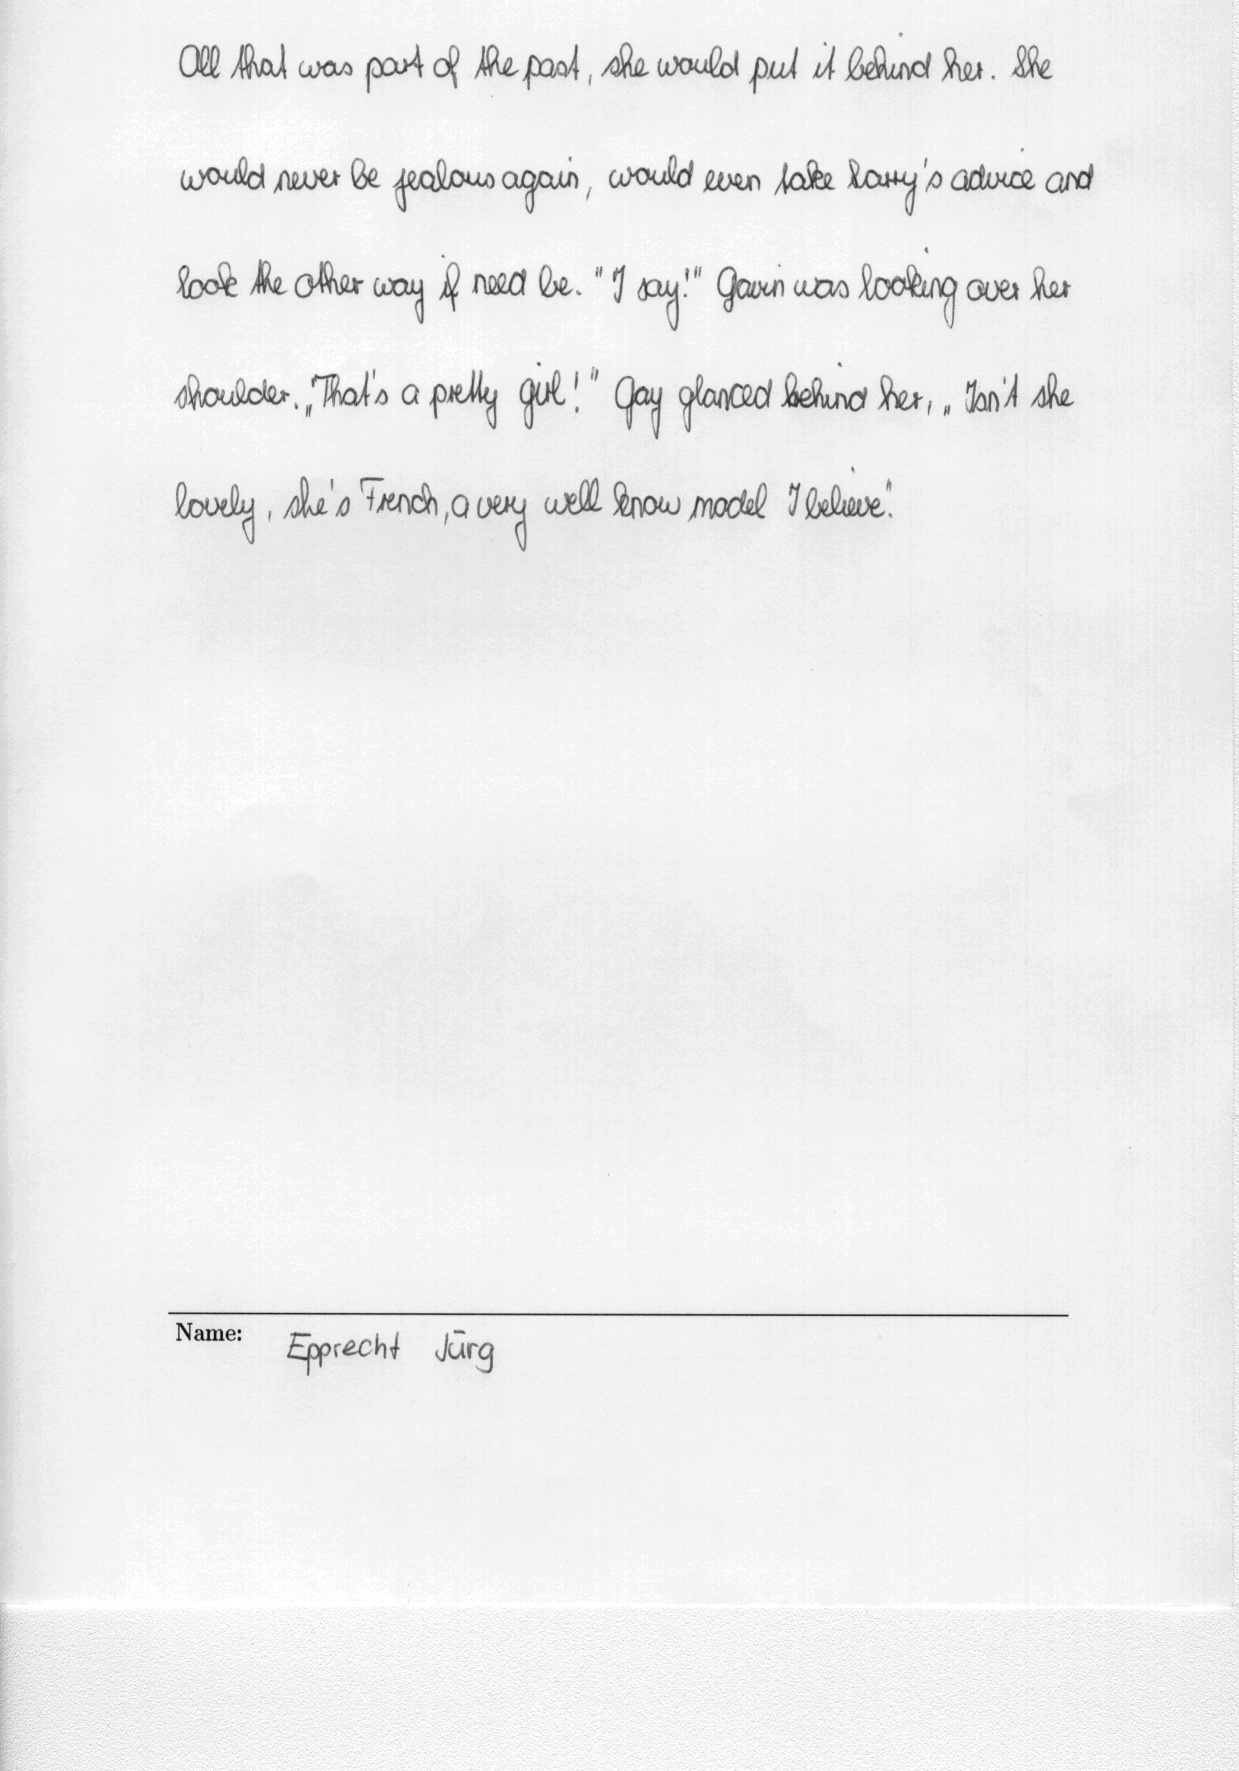 All that was part of the past, she would put it behind her. She
would never be jealous again, would even take Larry's advice and
look the other way if need be. "I say!" Gavin was looking over her
shoulder. „That's a pretty girl!" Gay glanced behind her, „Isn't she
lovely, she's French, a very well know model I believe".
Name: Epprecht Jürg